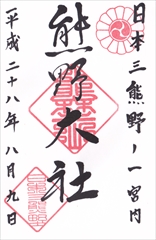 日本三熊野ノ一宮内
熊野大社
平成二十八年八月九日